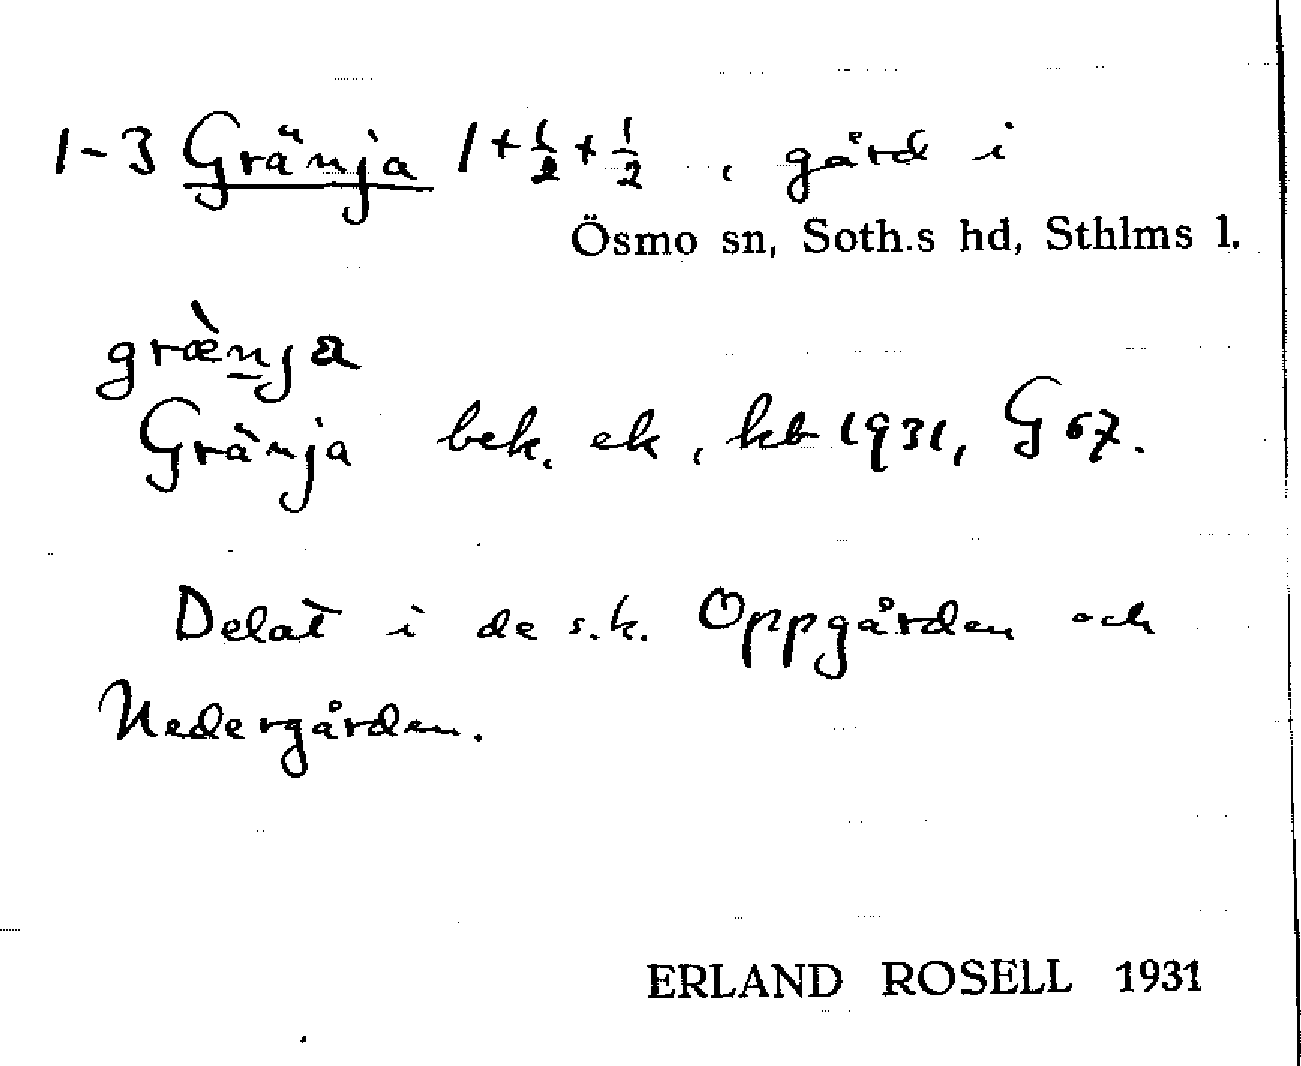 1-3 Gränja 1+½+½, gård i
Ösmo sn, Soth.s hd, Sthlms l.
græ̀nja
Gränja bek. ek, kb 1931, G 67.
Delat i de s.k. Oppgården och
Nedergården.
ERLAND ROSELL 1931